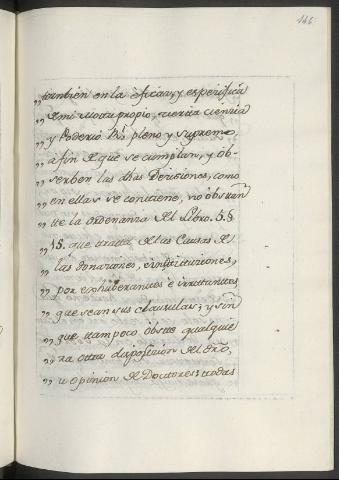 146
„ tambien en la eficaz, y experifica
„ de mi motu propio, cierta ciencia
„ y Poderio Rl. pleno y supremo,
„ a fin de que se cumplan, y ob-
„ serben las dhas Decisiones, como
„ en ellas se contiene, no obstan
„ te la ordenanza del Libro. 5. §
„ 15. que trata de las Causas de
„ las donaciones, e instituciones,
„ por exhuberantes e irritantes
„ que sean sus clausulas; y sin
„ que tampoco obste qualquie
„ ra otra disposicion del dro,
„ u opinion de Doctores; todas